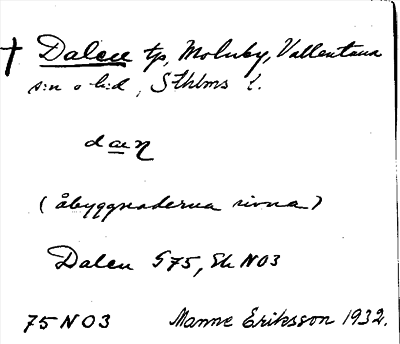 † Dalen tp, Molnby, Vallentuna
s:n o h:d, Sthlms l.
(åbyggnaderna rivna)
Dalen G75, Ek NO3
75 NO3 Manne Eriksson 1932.